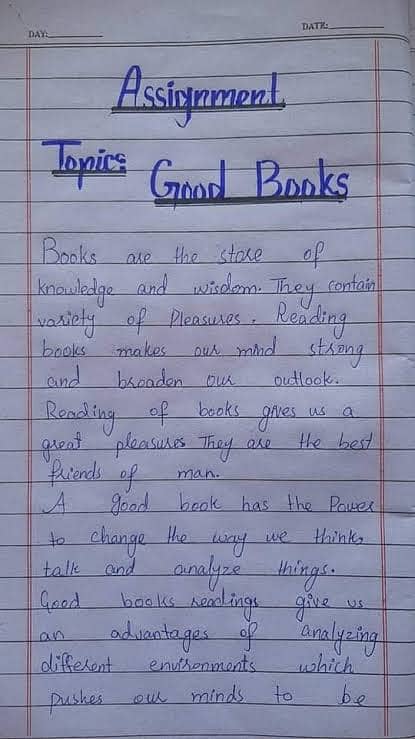 DAY:
DATE:
Assignment
Topic: Good Books
Books are the store of
knowledge and wisdom. They contain
variety of Pleasures. Reading
books makes our mind strong
and broaden our outlook.
Reading of books gives us a
great pleasures They are the best
friends of man.
A good book has the Power
to change the way we think,
talk and analyze things.
Good books readings give us
an advantages of analyzing
different environments which
pushes our minds to be